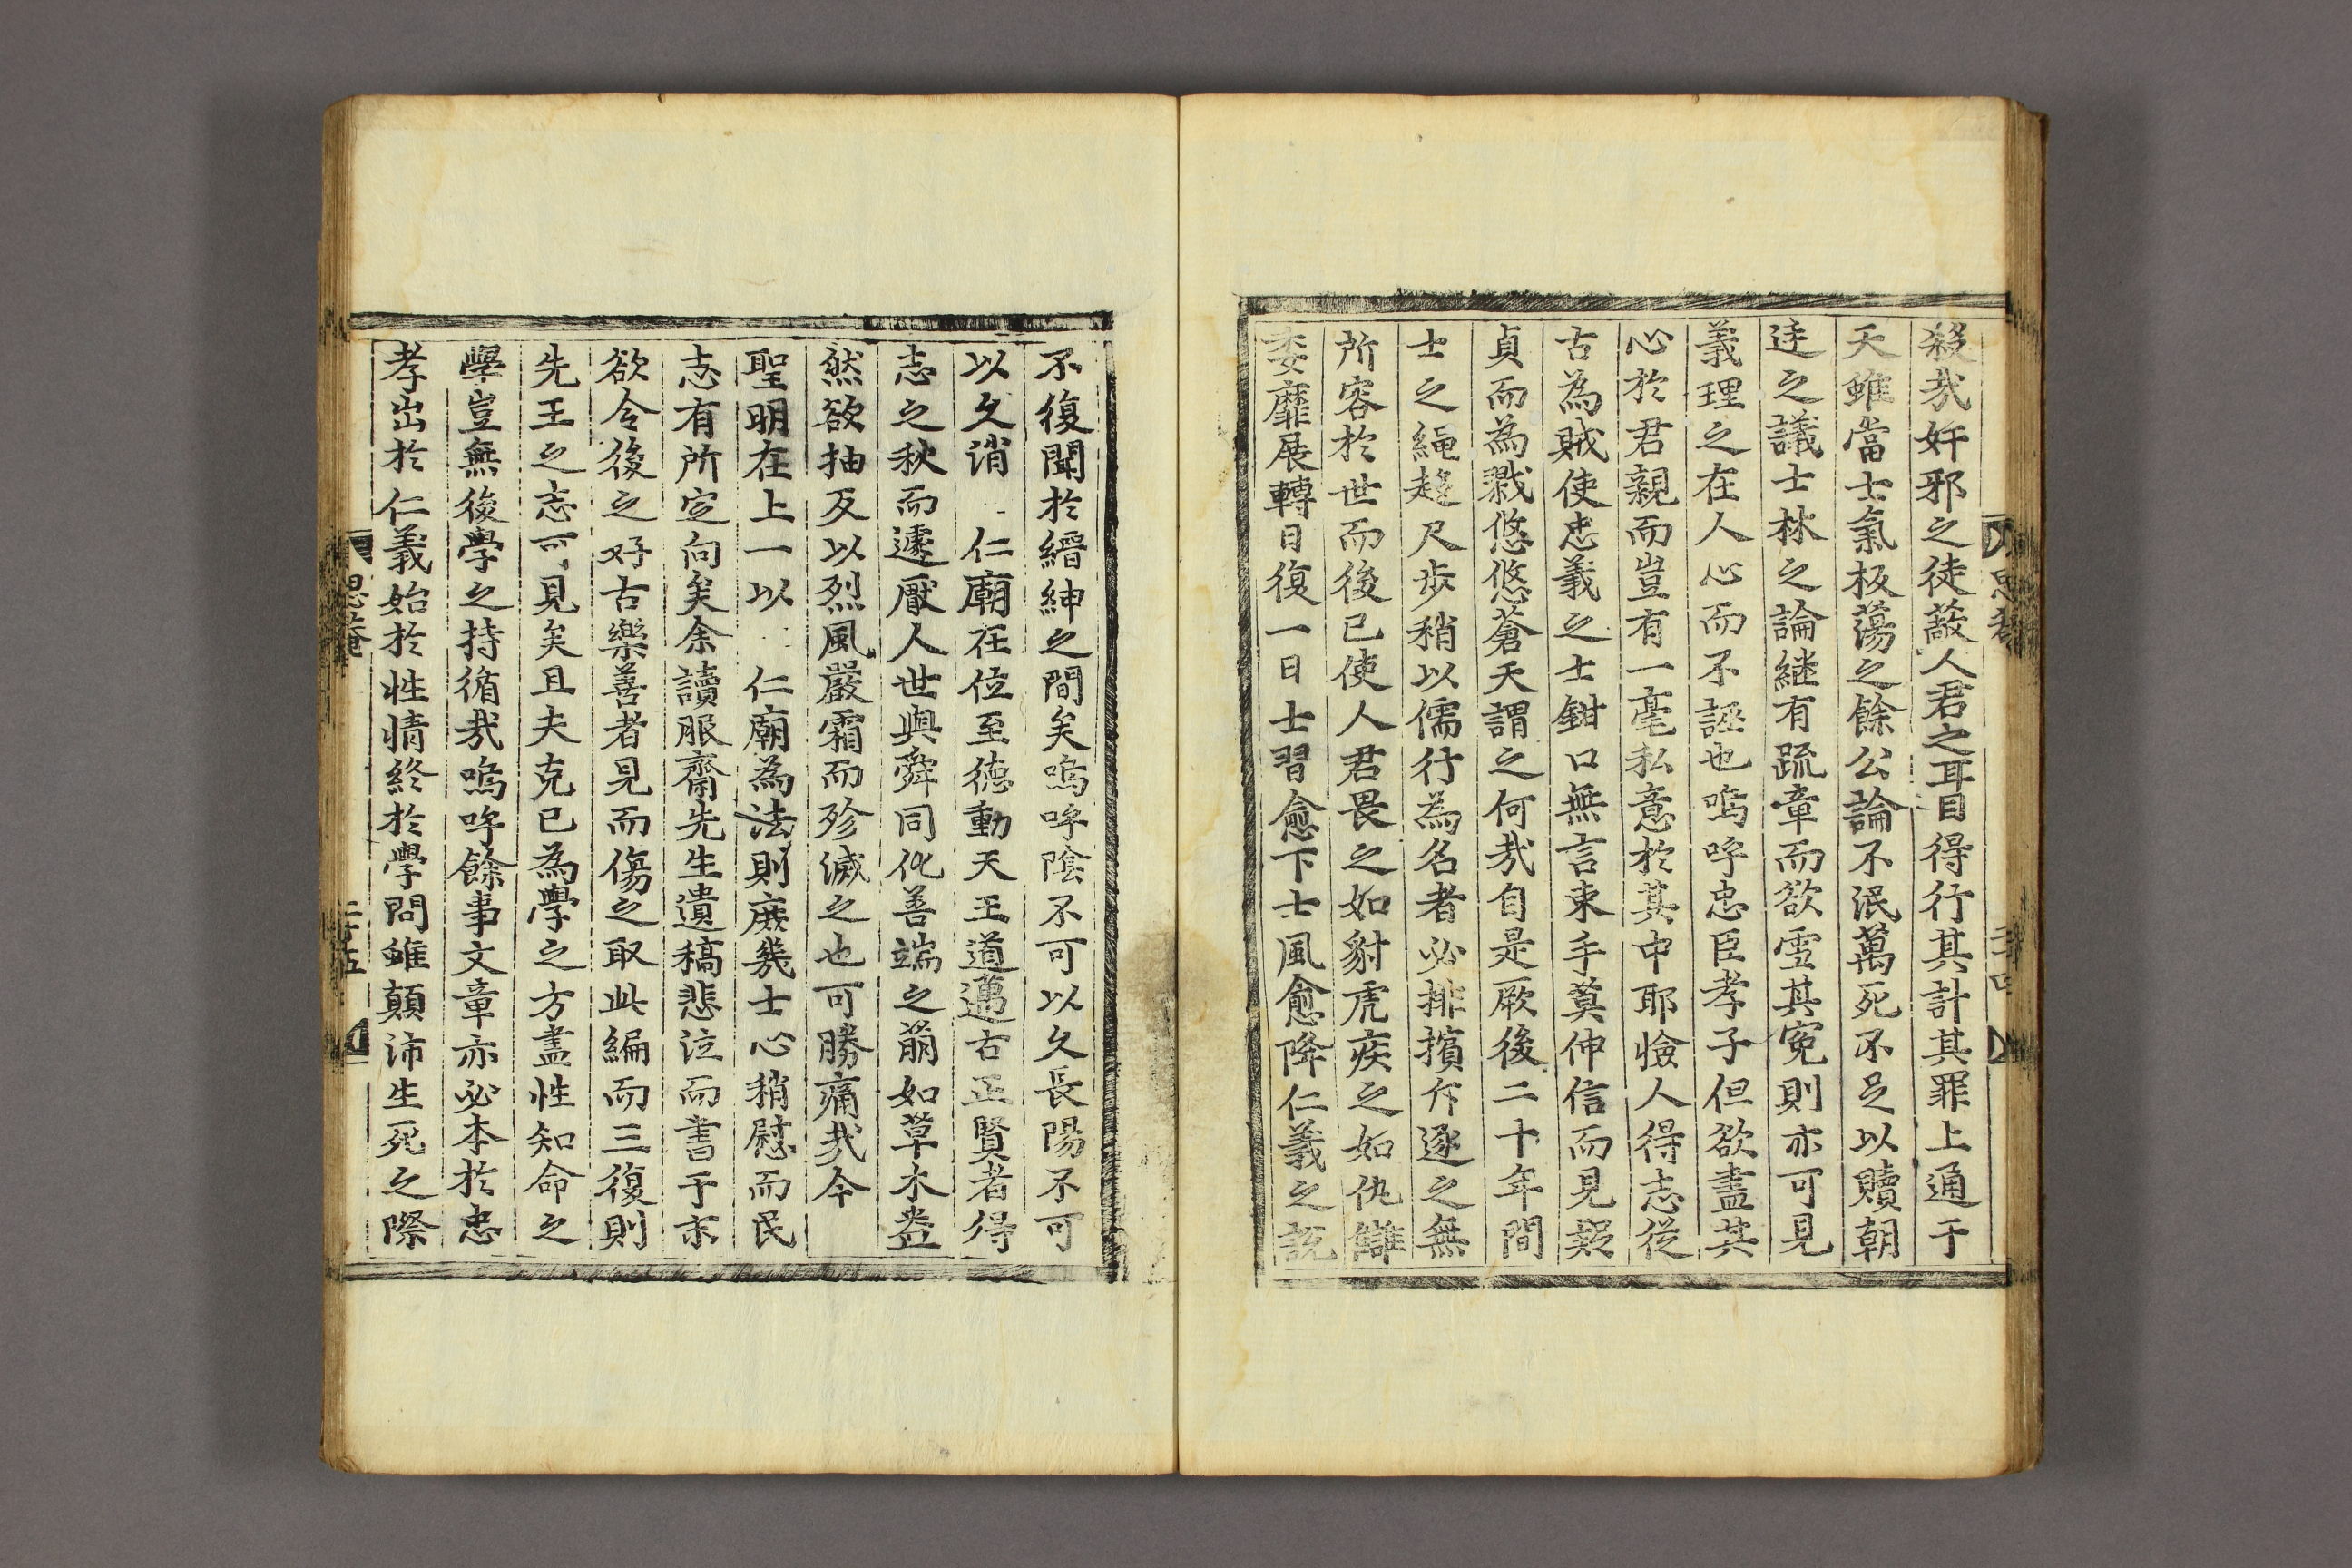 殺哉奸邪之徒蔽人君之耳目得行其計其罪上通于
天雖當士氣板蕩之餘公論不泯萬死不足以贖朝
廷之議士林之論継有疏章而欲雪其冤則亦可見
義理之在人心而不誣也嗚呼忠臣孝子但欲盡其
心於君親而豈有一毫私意於其中耶憸人得志從
古為賊使忠義之士鉗口無言束手莫伸信而見疑
貞而為戮悠悠蒼天謂之何哉自是厥後二十年間
士之繩趍尺步稍以儒行為名者必排擯斥逐之無
所容於世而後已使人君畏之如豺虎疾之如仇讎
委靡展轉日復一日士習愈下士風愈降仁義之說
思菴
二十四
不復聞於縉紳之間矣嗚呼陰不可以久長陽不可
以久消 仁廟在位至德動天王道邁古正賢者得
志之秋而遽厭人世與舜同化善端之萠如草木盎
然欲抽反以烈風嚴霜而殄滅之也可勝痛哉今
聖明在上一以 仁廟為法則庶幾士心稍慰而民
志有所定向矣余讀服齋先生遺稿悲泣而書于末
欲令後之好古樂善者見而傷之取此編而三復則
先王之志可見矣且夫克己為學之方盡性知命之
學豈無後學之持循哉嗚呼餘事文章亦必本於忠
孝出於仁義始於性情終於學問雖顛沛生死之際
思菴
二十五